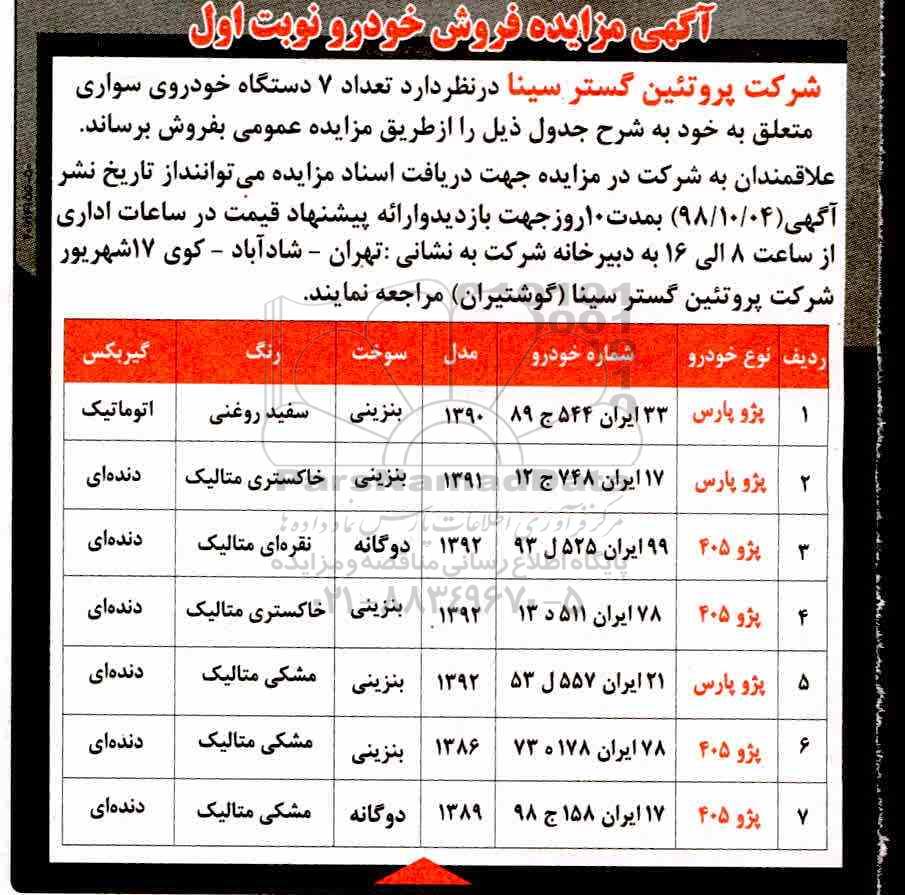 آگهی مزایده فروش خودرو نوبت اول
شرکت پروتئین گستر سینا درنظردارد تعداد ۷ دستگاه خودروی سواری
متعلق به خود به شرح جدول ذیل را ازطریق مزایده عمومی بفروش برساند.
علاقمندان به شرکت در مزایده جهت دریافت اسناد مزایده می‌توانند از تاریخ نشر
آگهی(۹۸/۱۰/۰۴) بمدت۱۰روزجهت بازدیدوارائه پیشنهاد قیمت در ساعات اداری
از ساعت ۸ الی ۱۶ به دبیرخانه شرکت به نشانی :تهران - شادآباد - کوی ۱۷شهریور
شرکت پروتئین گستر سینا (گوشتیران) مراجعه نمایند.
ردیف نوع خودرو شماره خودرو مدل سوخت رنگ گیربکس
۱ پژو پارس ۳۳ ایران ۵۴۴ ج ۸۹ ۱۳۹۰ بنزینی سفید روغنی اتوماتیک
۲ پژو پارس ۱۷ ایران ۷۴۸ ج ۱۲ ۱۳۹۱ بنزینی خاکستری متالیک دنده‌ای
۳ پژو ۴۰۵ ۹۹ ایران ۵۲۵ ل ۹۳ ۱۳۹۲ دوگانه نقره‌ای متالیک دنده‌ای
۴ پژو ۴۰۵ ۷۸ ایران ۵۱۱ د ۱۳ ۱۳۹۲ بنزینی خاکستری متالیک دنده‌ای
۵ پژو پارس ۲۱ ایران ۵۵۷ ل ۵۳ ۱۳۹۲ بنزینی مشکی متالیک دنده‌ای
۶ پژو ۴۰۵ ۷۸ ایران ۱۷۸ ه ۷۳ ۱۳۸۶ بنزینی مشکی متالیک دنده‌ای
۷ پژو ۴۰۵ ۱۷ ایران ۱۵۸ ج ۹۸ ۱۳۸۹ دوگانه مشکی متالیک دنده‌ای
ParsNamadData
مرکز فرآوری اطلاعات پارس نماد داده‌ها
پایگاه اطلاع رسانی مناقصه و مزایده
۰۲۱-۸۸۳۴۹۶۷۰-۵